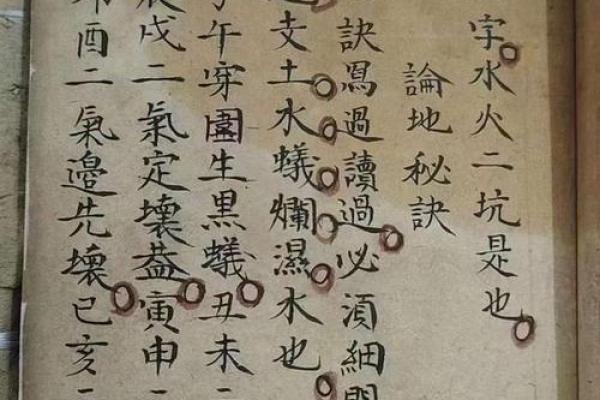 字水火二坑是也
論地秘訣
訣寫過讀過必須細
支土水蟻爛濕水也
午穿園生黑蟻丑未二
辰戌二氣定壞益寅申二
卯酉二氣邊先壞已亥二